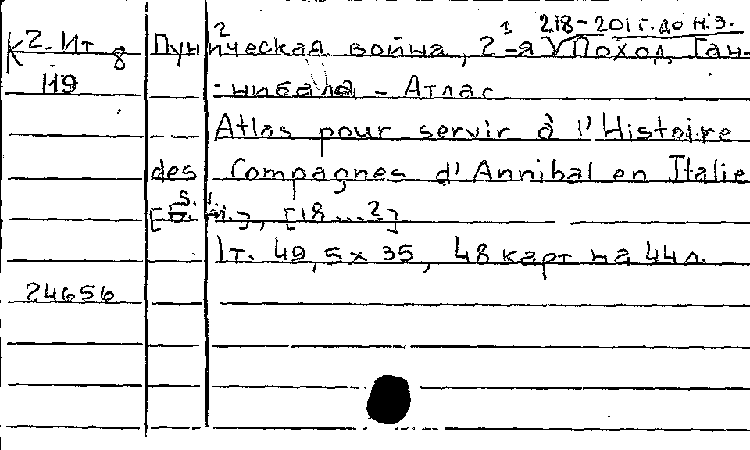 218-201 г. до н.э.
К 2-Ит 8 Пуническая война, 2-я Поход Ган-
119 -нибала - Атлас
Atlas pour servir à l'Histoire
des Compagnes d'Annibal en Italie
[S. l.], [18...?]
1 т. 49,5 x 35, 48 карт на 44 л.
24656